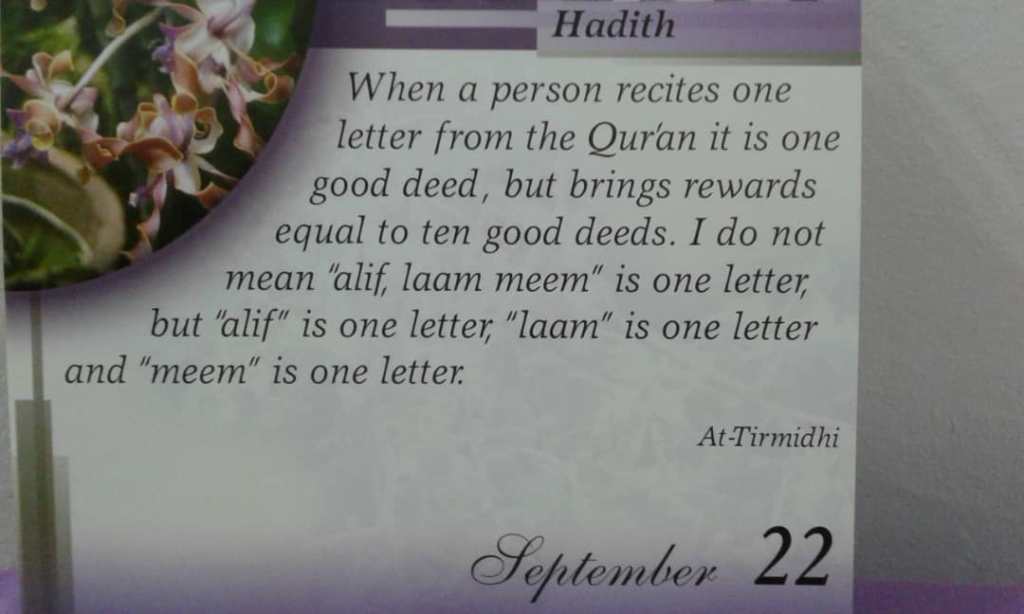 Hadith
When a person recites one
letter from the Qur'an it is one
good deed, but brings rewards
equal to ten good deeds. I do not
mean "alif, laam meem" is one letter,
but "alif" is one letter, "laam" is one letter
and "meem" is one letter.
At-Tirmidhi
September 22